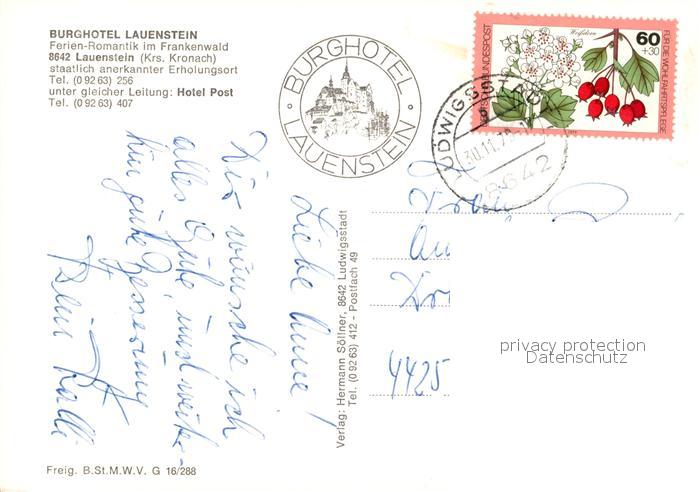 BURGHOTEL LAUENSTEIN
Ferien-Romantik im Frankenwald
8642 Lauenstein (Krs. Kronach)
staatlich anerkannter Erholungsort
Tel. (0 92 63) 256
unter gleicher Leitung: Hotel Post
Tel. (0 92 63) 407
· BURGHOTEL ·
LAUENSTEIN
DEUTSCHE BUNDESPOST
60
+30
FÜR DIE WOHLFAHRTSPFLEGE
LUDWIGSSTADT
30.11.79
8642
Liebe Anne!
Dir wünsche ich
alles Gute, und weiter-
hin gute Besserung
Dein Kalle
Verlag: Hermann Söllner, 8642 Ludwigsstadt
Tel. (0 92 63) 412 - Postfach 49
4425
privacy protection
Datenschutz
Freig. B.St.M.W.V. G 16/288